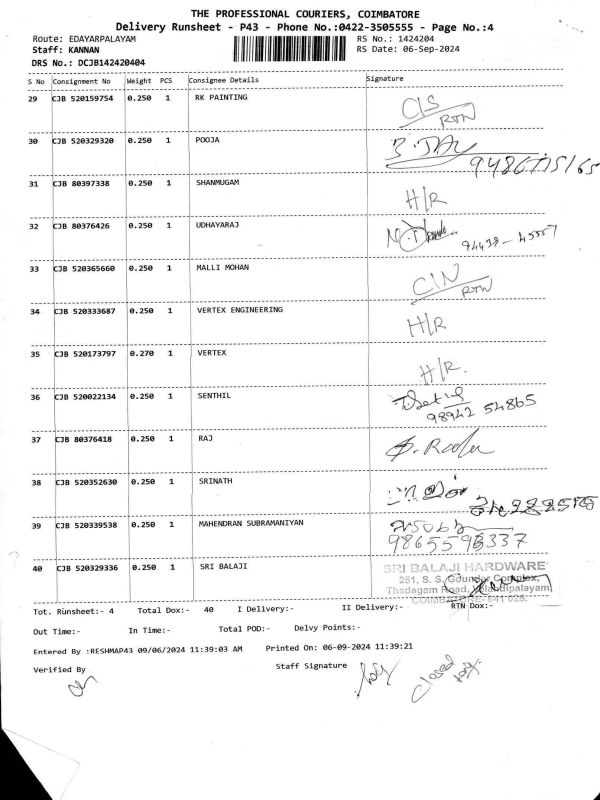 THE PROFESSIONAL COURIERS, COIMBATORE
Delivery Runsheet - P43 - Phone No.:0422-3505555 - Page No.:4
Route: EDAYARPALAYAM RS No.: 1424204
Staff: KANNAN RS Date: 06-Sep-2024
DRS No.: DCJB142420404
S No Consignment No Weight PCS Consignee Details Signature
29 CJB 520159754 0.250 1 RK PAINTING C/S RTN
30 CJB 520329320 0.250 1 POOJA
31 CJB 80397338 0.250 1 SHANMUGAM H/R
32 CJB 80376426 0.250 1 UDHAYARAJ
33 CJB 520365660 0.250 1 MALLI MOHAN C/N RTN
34 CJB 520333687 0.250 1 VERTEX ENGINEERING H/R
35 CJB 520173797 0.270 1 VERTEX H/R.
36 CJB 520022134 0.250 1 SENTHIL 98942 54865
37 CJB 80376418 0.250 1 RAJ
38 CJB 520352630 0.250 1 SRINATH
39 CJB 520339538 0.250 1 MAHENDRAN SUBRAMANIYAN
40 CJB 520329336 0.250 1 SRI BALAJI SRI BALAJI HARDWARE
251, S. S. Gounder Complex,
Thadagam Road,
COIMBATORE- 641 025.
Tot. Runsheet:- 4 Total Dox:- 40 I Delivery:- II Delivery:- RTN Dox:-
Out Time:- In Time:- Total POD:- Delvy Points:-
Entered By :RESHMAP43 09/06/2024 11:39:03 AM Printed On: 06-09-2024 11:39:21
Verified By Staff Signature
closed